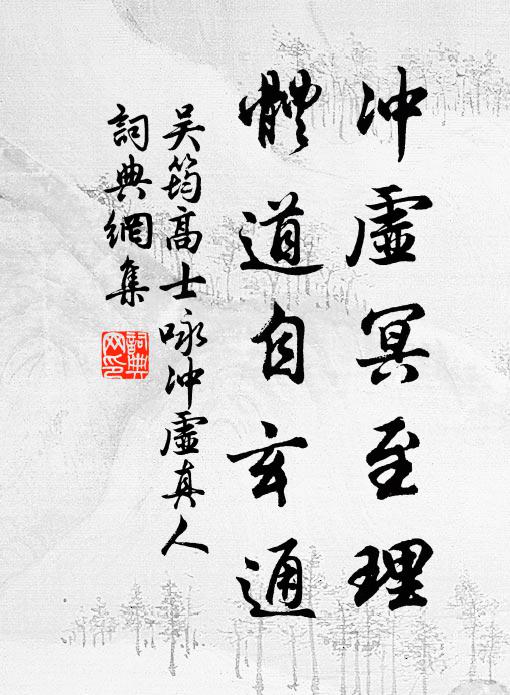 冲虛冥至理
體道自玄通
吴筠高士咏冲虛真人
詞典網集
詞典網印